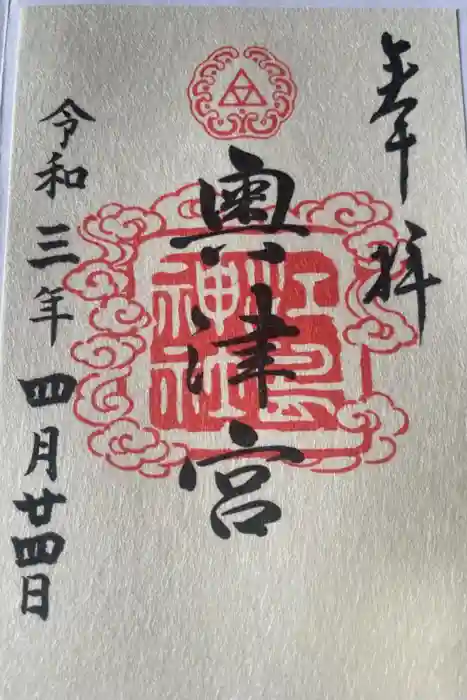 奉拝
奥津宮
江島
神社
令和三年四月廿四日